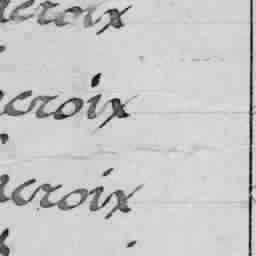 croix
croix
croix